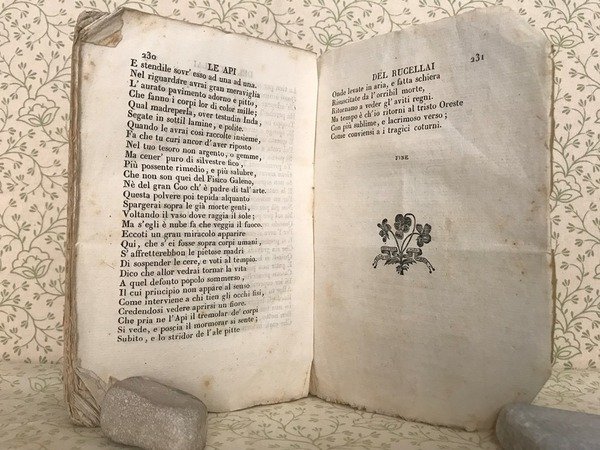 230
LE API
E stendile sovr' esso ad una ad una.
Nel riguardare avrai gran meraviglia
L' aurato pavimento adorno e pitto,
Che fanno i corpi lor di color mille;
Qual madreperla, over testudin Inda
Segate in sottil lamine, e polite.
Quando le avrai così raccolte insieme,
Fa che tu curi ancor d' aver riposto
Nel tuo tesoro non argento, o gemme,
Ma cener' puro di silvestre fico,
Più possente rimedio, e più salubre,
Che non son quei del Fisico Galeno,
Nè del gran Coo ch' è padre di tal' arte.
Questa polvere poi tepida alquanto
Spargerai sopra le già morte genti,
Voltando il vaso dove raggia il sole;
Ma s'egli è nube fa che veggia il fuoco.
Eccoti un gran miracolo apparire
Qui, che s'ei fosse sopra corpi umani,
S' affretterebbon le pietose madri
Di sospender le cere, e voti al tempio.
Dico che allor vedrai tornar la vita
A quel defonto popolo sommerso,
Il cui principio non appare al senso
Come interviene a chi tien gli occhi fisi,
Credendosi vedere aprirsi un fiore.
Che pria ne l'Api il tremolar de' corpi
Si vede, e poscia il mormorar si sente;
Subito, e lo stridor de l'ale pitte
DEL RUCELLAI
231
Onde levate in aria, e fatta schiera
Risuscitate da l'orribil morte,
Ritornano a veder gl' aviti regni.
Ma tempo è ch'io ritorni al tristo Oreste
Con più sublime, e lacrimoso verso;
Come conviensi a i tragici coturni.
FINE